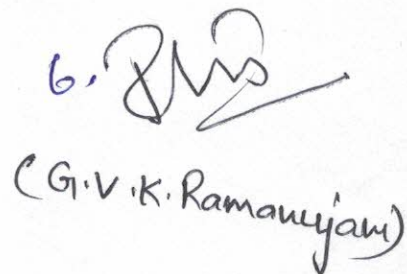 6.
(G.V.K. Ramanujam)